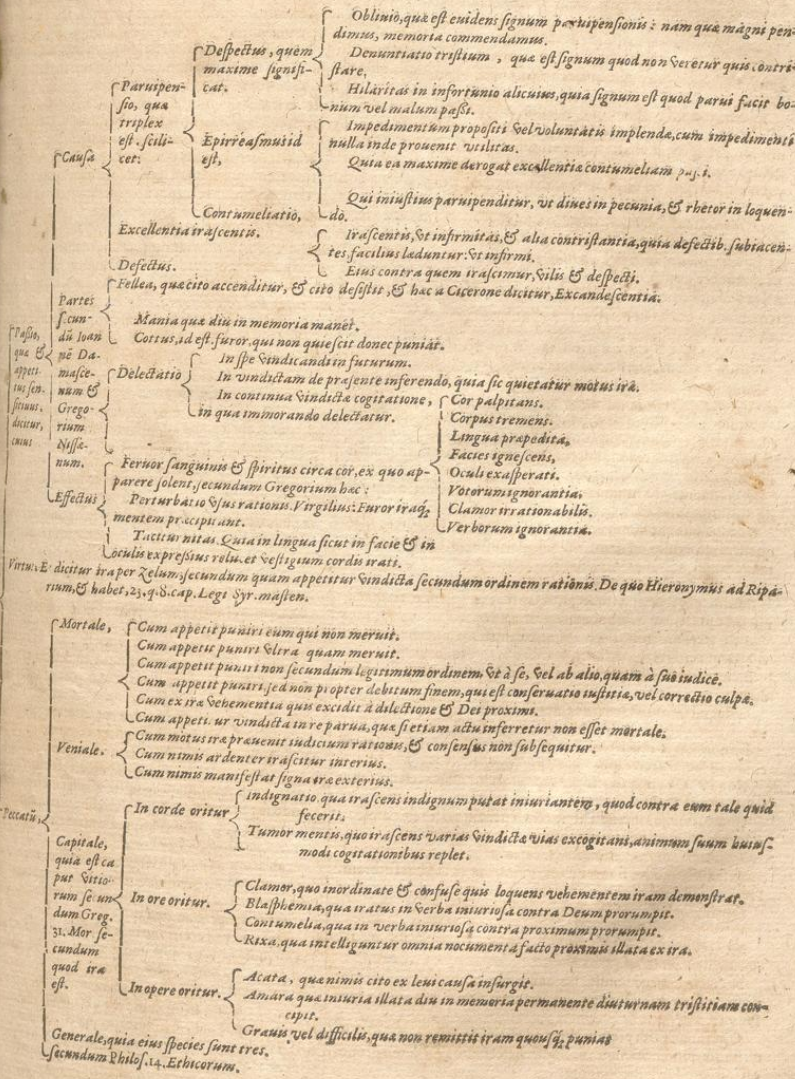 Obliuio, quæ est euidens signum paruipensionis : nam quæ magni pen-
dimus, memoria commendamus.
Despectus, quem
maxime signifi-
cat.
Denuntiatio tristium, quæ est signum quod non veretur quis contri-
stare.
Hilaritas in infortunio alicuius, quia signum est quod parui facit bo-
num vel malum passi.
Paruipen-
sio, quæ
triplex
est. scili-
cet:
Epirreasmus id
est,
Impedimentum propositi vel voluntatis implendæ, cum impedimenti
nulla inde prouenit vtilitas.
Quia ea maxime derogat excellentiæ contumeliam
Causa
Contumeliatio,
Qui iniustius paruipenditur, vt diues in pecunia, & rhetor in loquen-
do.
Excellentia irascentis.
Defectus.
Irascentis, vt infirmitas, & alia contristantia, quia defectib. subiacen-
tes, facilius læduntur: vt infirmi.
Eius contra quem irascimur, vilis & despecti.
Passio,
quæ &
appeti-
tus sen-
sitiuus.
dicitur,
cuius
Partes
secun-
dũ Ioan
nẽ Da-
masce-
num &
Grego-
rium
Nissæ-
num.
Fellea, quæ cito accenditur, & cito desistit, & hæc a Cicerone dicitur, Excandescentia.
Mania quæ diu in memoria manet.
Cottus, id est, furor, qui non quiescit donec puniat.
Effectus
Delectatio
In spe vindicandi in futurum.
In vindictam de præsente inferendo, quia sic quietatur motus iræ.
In continua vindictæ cogitatione,
in qua immorando delectatur.
Feruor sanguinis & spiritus circa cor, ex quo ap-
parere solent, secundum Gregorium hæc :
Cor palpitans.
Corpus tremens.
Lingua præpedita.
Facies ignescens,
Oculi exasperati.
Votorum ignorantia.
Clamor irrationabilis.
Verborum ignorantia.
Perturbatio vsus rationis. Virgilius: Furor iraq́;
mentem præcipitant.
Taciturnitas. Quia in lingua sicut in facie & in
oculis expressius reluc.et vestigium cordis irati.
Virtus. Et dicitur ira per Zelum, secundum quam appetitur vindicta secundum ordinem rationis. De quo Hieronymus ad Ripa-
rium, & habet, 23. q. 8. cap. Legi Syr. masten.
Peccatũ,
Mortale,
Cum appetit puniri eum qui non meruit.
Cum appetit puniri vltra quam meruit.
Cum appetit puniri non secundum legitimum ordinem, vt à se, vel ab alio, quam à suo iudice.
Cum appetit puniri, sed non propter debitum finem, qui est conseruatio iustitiæ, vel correctio culpæ.
Cum ex iræ vehementia quis excidit à dilectione & Dei proximi.
Veniale.
Cum appeti.ur vindicta in re parua, quæ si etiam actu inferretur non esset mortale.
Cum motus iræ præuenit iudicium rationis, & consensus non subsequitur.
Cum nimis ardenter irascitur interius.
Cum nimis manifestat signa iræ exterius.
Capitale,
quia est ca
put vitio-
rum secun
dum Greg.
31. Mor se-
cundum
quod ira
est.
In corde oritur
Indignatio qua irascens indignum putat iniuriantem, quod contra eum tale quid
fecerit.
Tumor mentis, quo irascens varias vindictæ vias excogitani, animum suum huius-
modi cogitationibus replet.
In ore oritur.
Clamor, quo inordinate & confuse quis loquens vehementem iram demonstrat.
Blasphemia, qua iratus in verba iniuriosa contra Deum prorumpit.
Contumelia, qua in verba iniuriosa contra proximum prorumpit.
Rixa, qua intelliguntur omnia nocumenta facto proximis illata ex ira.
In opere oritur.
Acata, quæ nimis cito ex leui causa insurgit.
Amara quæ iniuria illata diu in memoria permanente diuturnam tristitiam con-
cipit.
Grauis vel difficilis, quæ non remittit iram quousq́; puniat
Generale, quia eius species sunt tres.
secundum Philos. 14. Ethicorum.